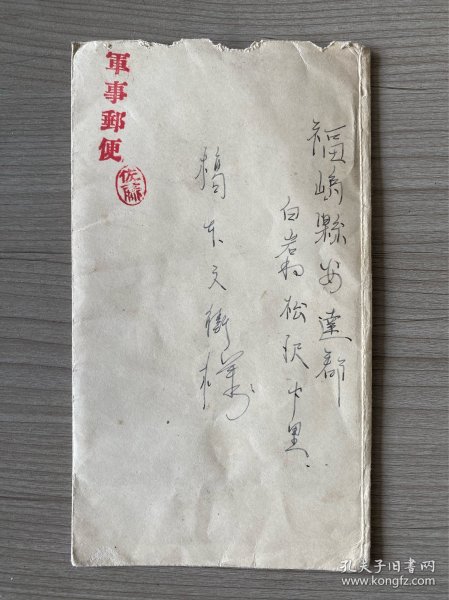 福嶋縣安達郡
白岩村松沢中里
橋本文衛
軍事郵便
佐藤
孔夫子旧书网
www.kongfz.com